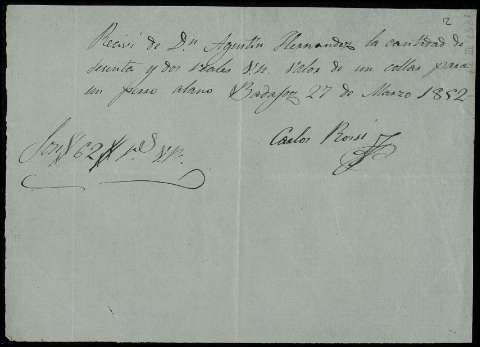 2
Recivi de Dn. Agustin Hernandez la cantidad de
sesenta y dos reales vn. valor de un collar para
un perro alano Badajoz 27 de Marzo 1852
Carlos Rossi
Son 62 rs. vn.